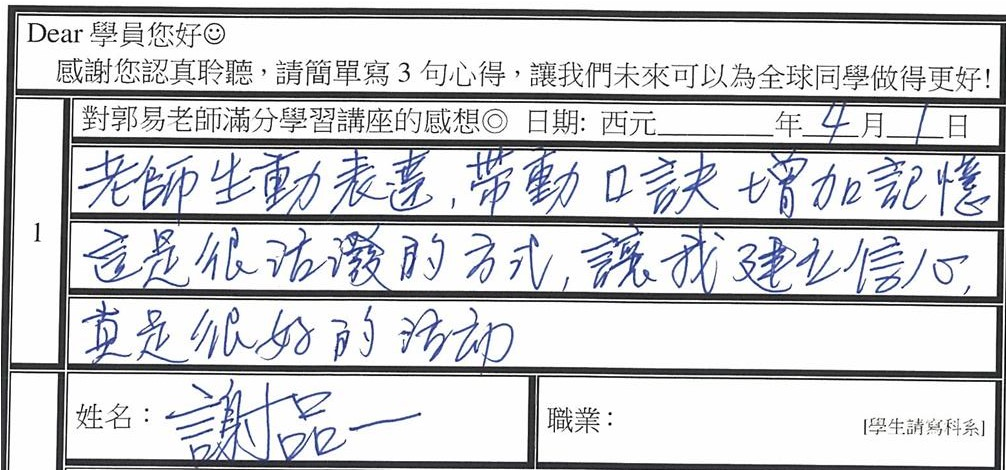 Dear 學員您好☺
感謝您認真聆聽，請簡單寫 3 句心得，讓我們未來可以為全球同學做得更好!
1
對郭易老師滿分學習講座的感想◎ 日期: 西元________年 4 月 1 日
老師生動表達,帶動口訣 增加記憶
這是很活潑的方式,讓我建立信心,
真是很好的活动
姓名：謝品一
職業： [學生請寫科系]